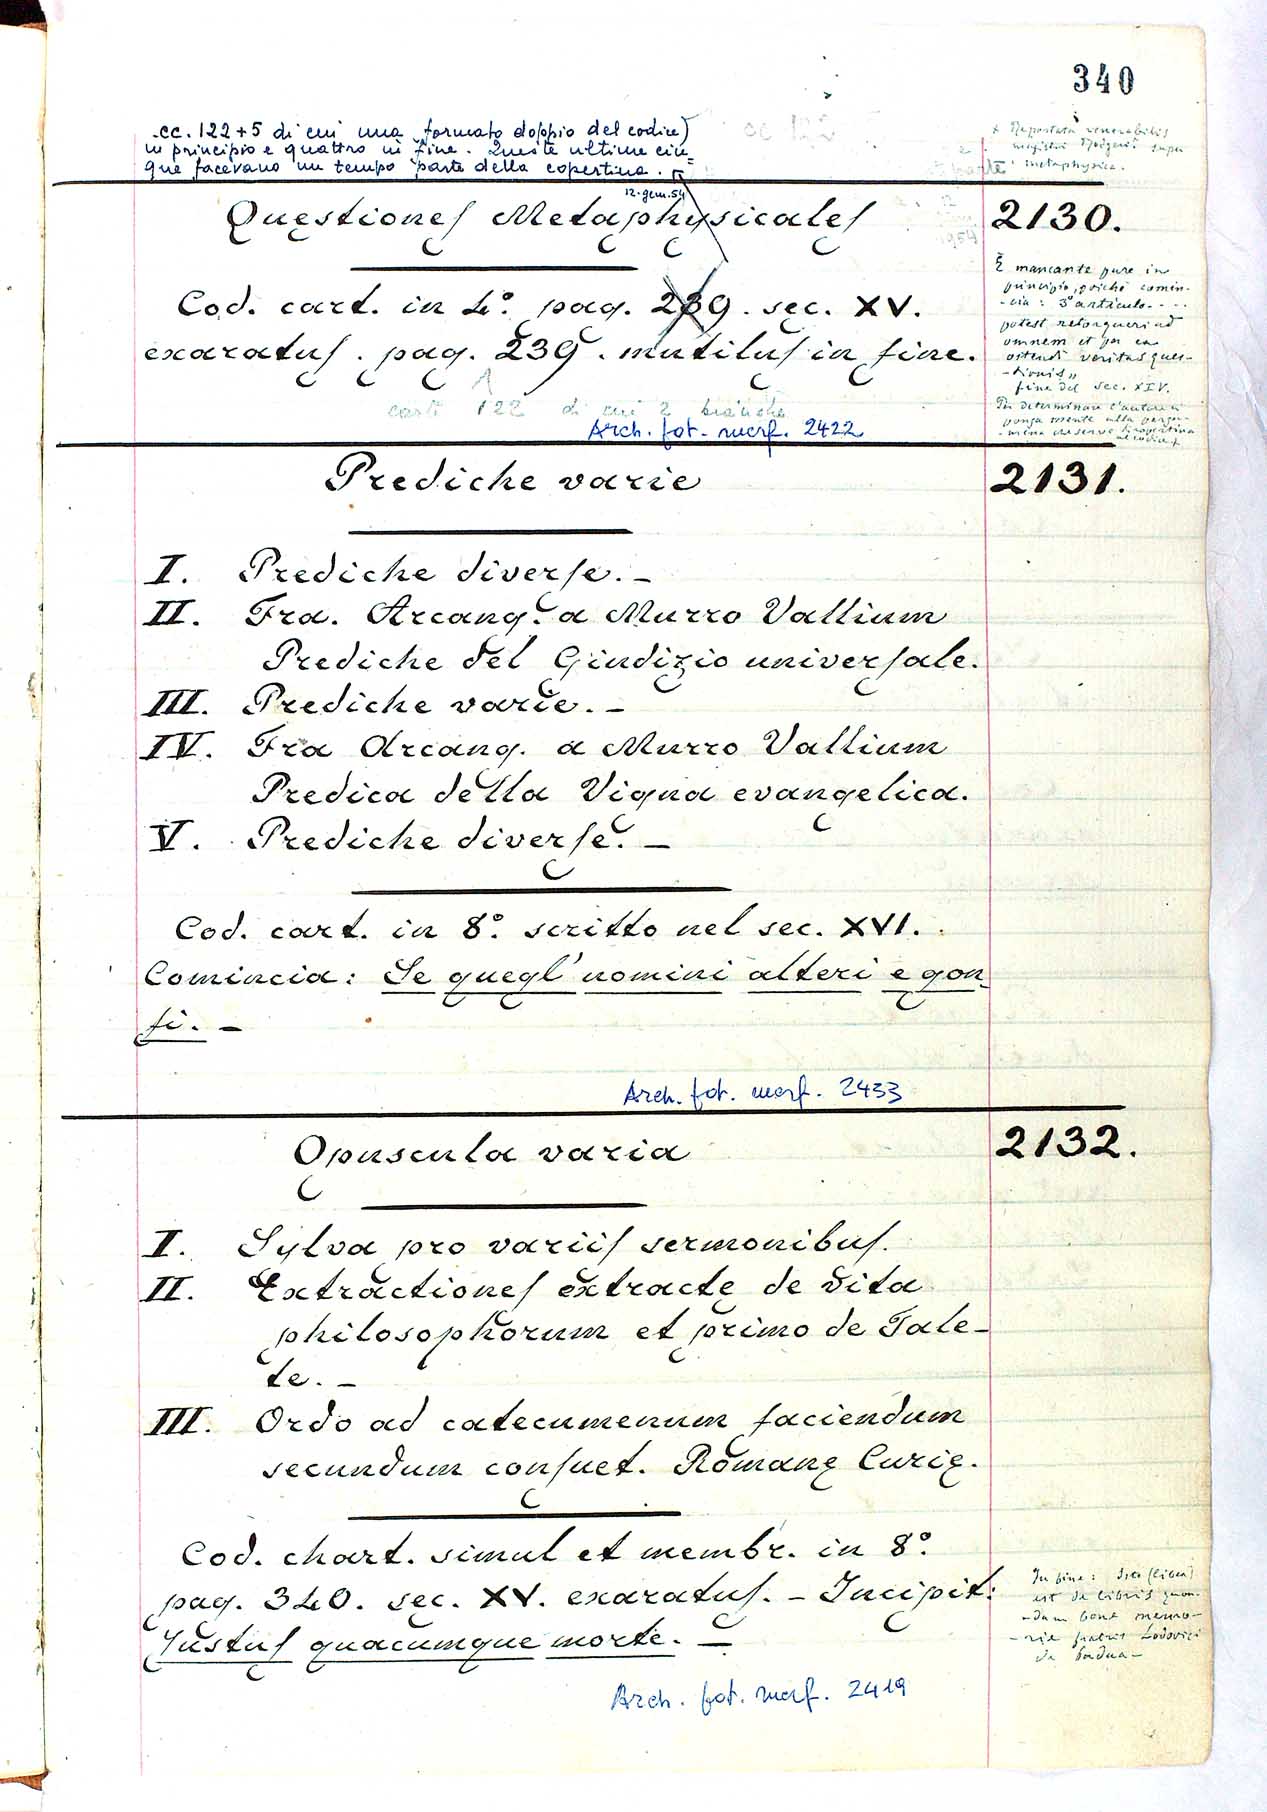 340
cc. 122 + 5 di cui una formato doppio del codice)
in principio e quattro in fine. Queste ultime cin=
que facevano un tempo parte della copertina.
12. gen. 54
x Reportata venerabilis
magistri super
metaphysica.
Questiones Metaphysicales
2130.
Cod. cart. in 4º. pag. 239. sec. XV.
exaratus. pag. 239. mutilus in fine.
carte 122 di cui 2 bianche
Arch. fot. merf. 2422
È mancante pure in
principio, poichè comin-
-cia: 3º articulo. - - -
potest retorqueri ad
omnem et per ea
ostendi veritas ques-
-tionis„
fine del sec. XIV.
Per determinare l'autore si
ponga mente alla perga-
-mena che serve di copertina
al codice x
Prediche varie
2131.
I. Prediche diverse. -
II. Fra. Arcang. a Murro Vallium
Prediche del Giudizio universale.
III. Prediche varie. -
IV. Fra Arcang. a Murro Vallium
Predica della Vigna evangelica.
V. Prediche diverse. -
Cod. cart. in 8º. scritto nel sec. XVI.
Comincia: Se quegl' uomini alteri e gon-
fi. -
Arch. fot. merf. 2433
Opuscula varia
2132.
I. Sylva pro variis sermonibus.
II. Extractiones extractę de vita
philosophorum et primo de Tale-
te. -
III. Ordo ad catecumenum faciendum
secundum consuet. Romanę Curię.
Cod. chart. simul et membr. in 8º.
pag. 340. sec. XV. exaratus. - Incipit:
Justus quacumque morte. -
In fine: Iste (liber)
est de libris quon-
-dam bone memo-
-rie fratris Lodovici
de Padua -
Arch. fot. merf. 2419